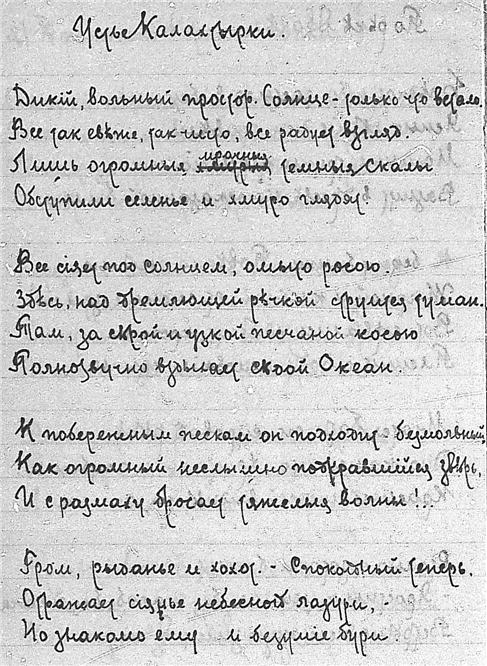 Устье Калахтырки.
Дикій, вольный простор. Солнце - только что встало.
Все так свѣже, так чисто, все радует взгляд.
Лишь огромныя мрачныя темныя скалы
Обступили селенье и хмуро глядят
Все сіяет под солнцем, омыто росою.
Здѣсь, над дремлющей рѣчкой струится туман.
Там, за сѣрой и узкой песчаной косою
Полнозвучно вздыхает сѣдой Океан.
К побережным пескам он подходит - безмолвный,
Как огромный неслышно подкравшійся звѣрь,
И с размаху бросает тяжелыя волны!..
Гром, рыданье и хохот. - Спокойный теперь.
Отражает сіянье небесной лазури, -
Но знакомо ему и безуміе бури